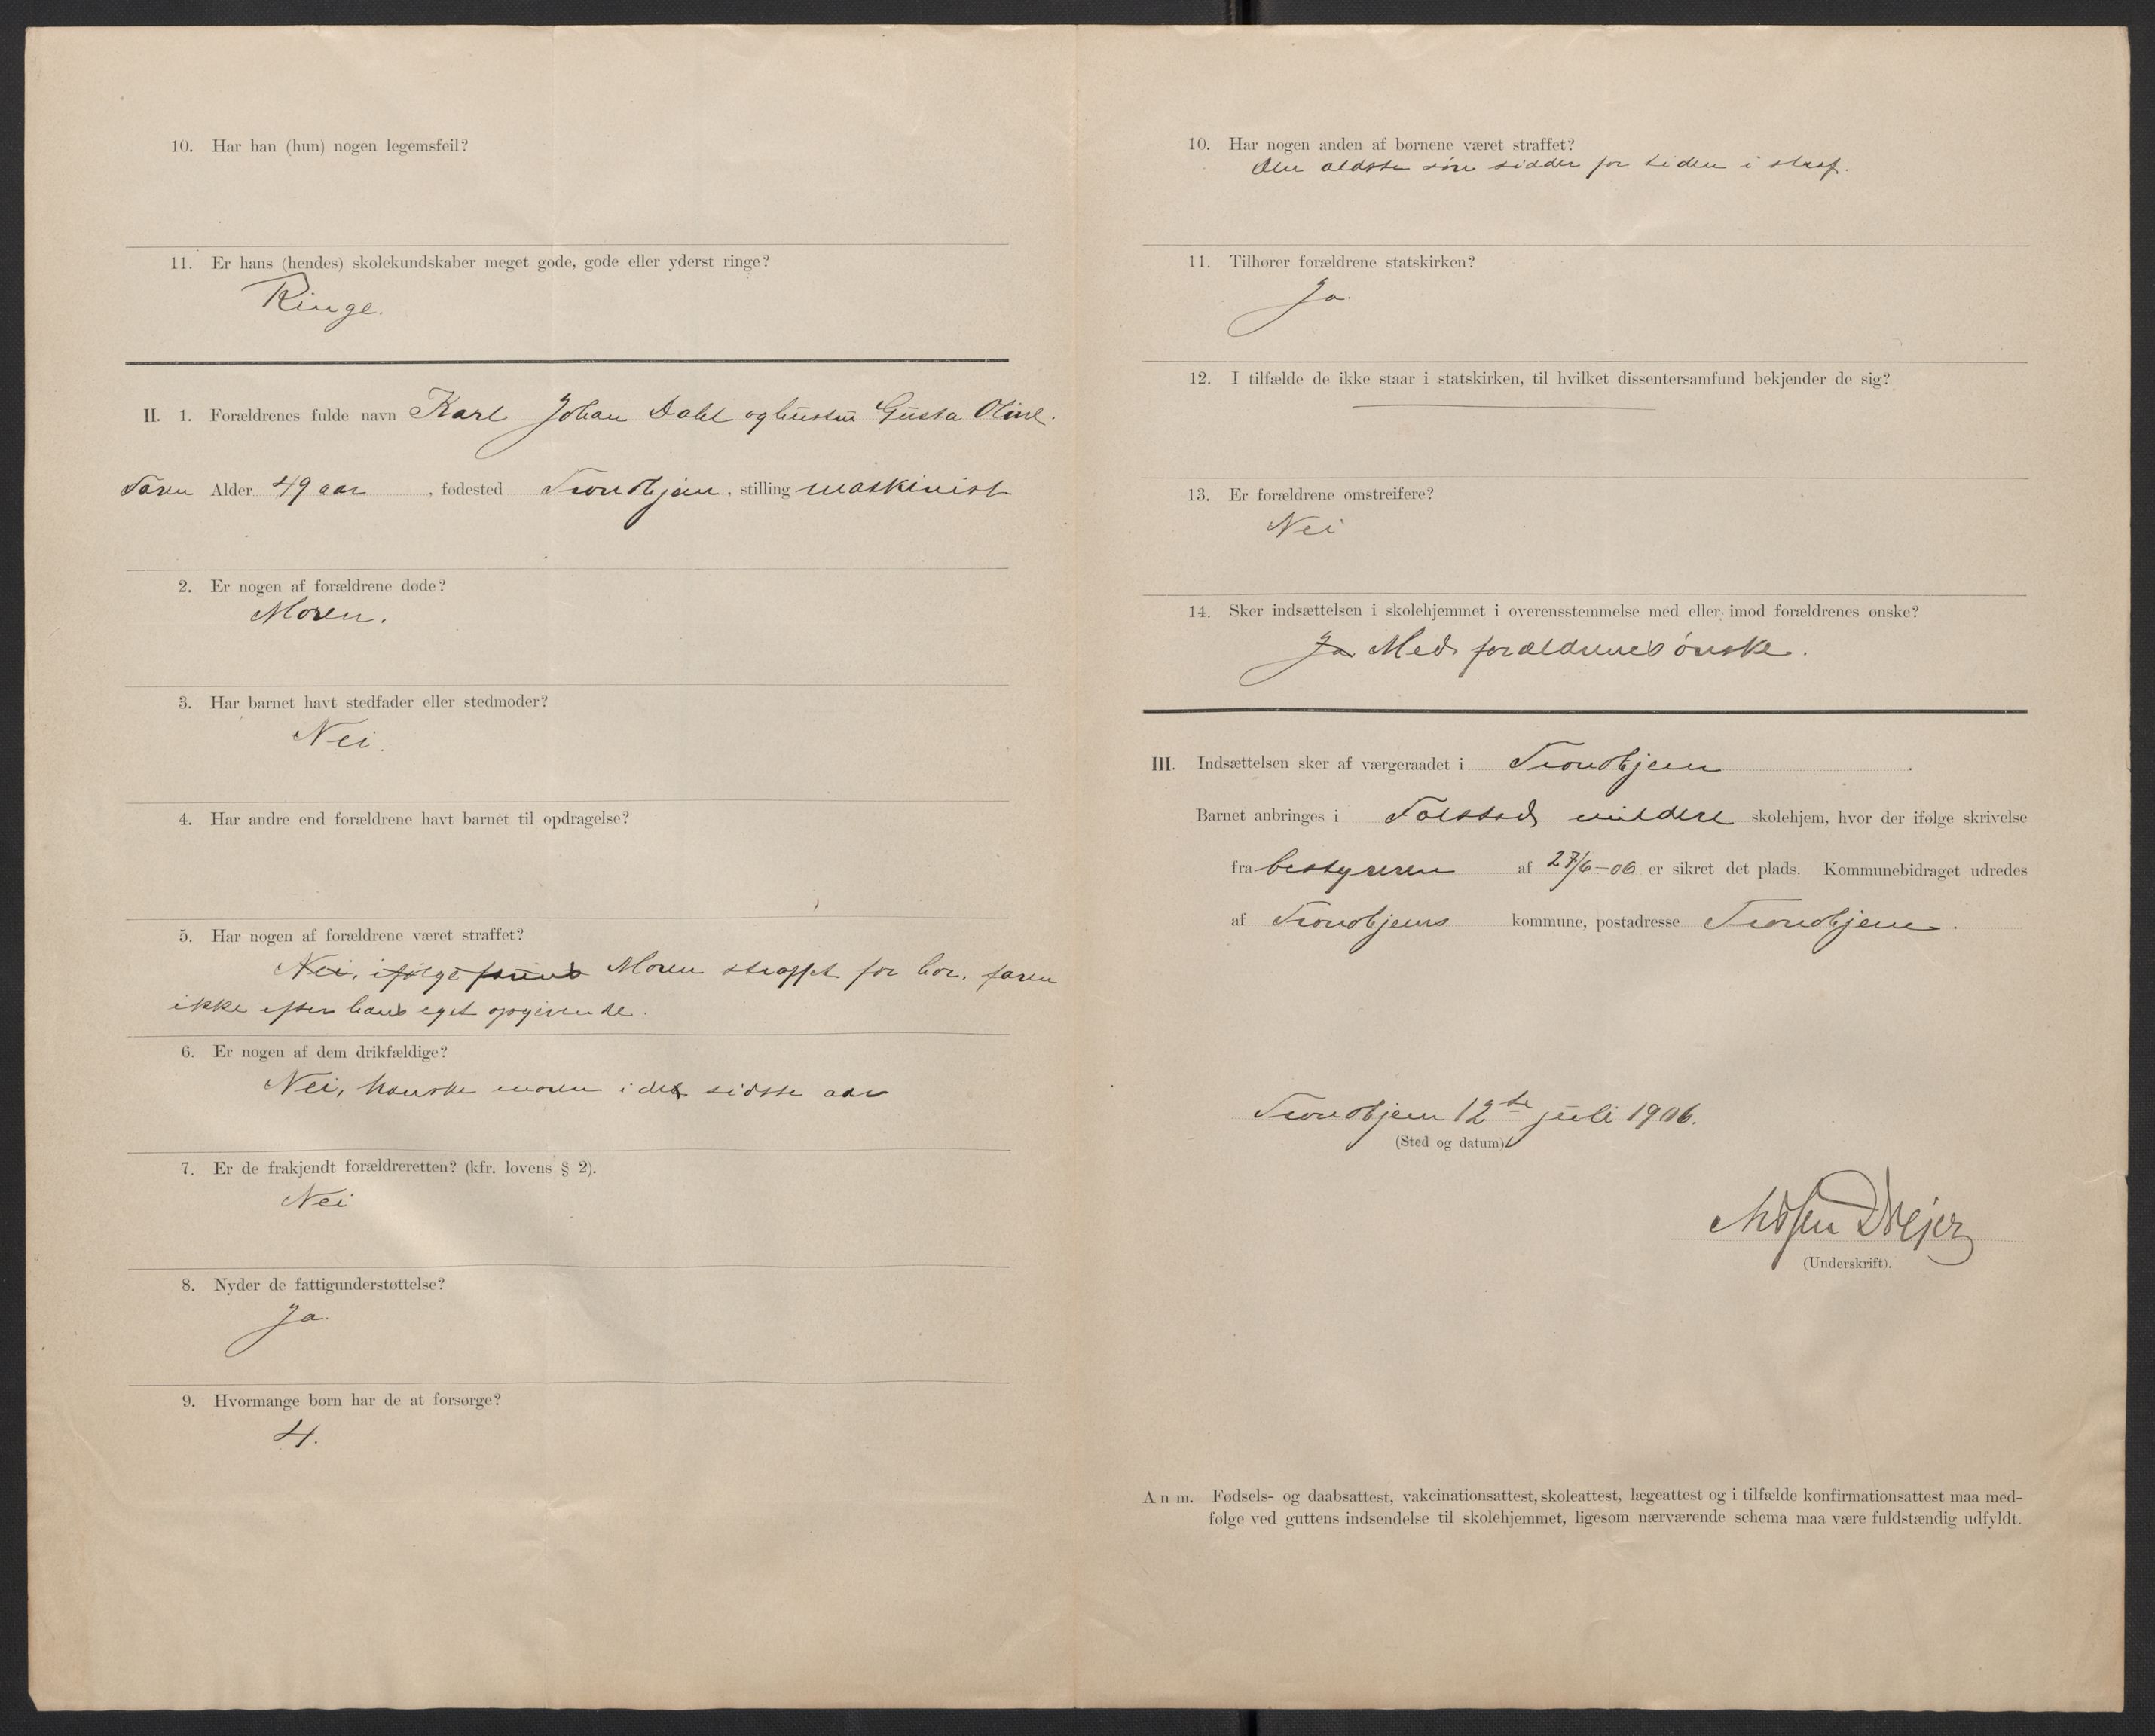 10. Har han (hun) nogen legemsfeil?
11. Er hans (hendes) skolekundskaber meget gode, gode eller yderst ringe?
Ringe.
II. 1. Forældrenes fulde navn Karl Johan Dahl og hustru Gusta Oline.
Faren Alder 49 aar, fødested Trondhjem, stilling maskinist
2. Er nogen af forældrene døde?
Moren.
3. Har barnet havt stedfader eller stedmoder?
Nei.
4. Har andre end forældrene havt barnet til opdragelse?
5. Har nogen af forældrene været straffet?
Nei, ifølge Moren straffet for hor, faren
ikke efter hans eget opgivende.
6. Er nogen af dem drikfældige?
Nei, kanske moren i det sidste aar
7. Er de frakjendt forældreretten? (kfr. lovens § 2).
Nei
8. Nyder de fattigunderstøttelse?
Ja.
9. Hvormange børn har de at forsørge?
4.
10. Har nogen anden af børnene været straffet?
Den ældste søn sidder for tiden i straf.
11. Tilhører forældrene statskirken?
Ja.
12. I tilfælde de ikke staar i statskirken, til hvilket dissentersamfund bekjender de sig?
13. Er forældrene omstreifere?
Nei
14. Sker indsættelsen i skolehjemmet i overensstemmelse med eller imod forældrenes ønske?
Ja. Med forældrenes ønske.
III. Indsættelsen sker af værgeraadet i Trondhjem.
Barnet anbringes i Falstad mildere skolehjem, hvor der ifølge skrivelse
fra bestyreren af 27/6-06 er sikret det plads. Kommunebidraget udredes
af Trondhjems kommune, postadresse Trondhjem.
Trondhjem 12te juli 1906.
(Sted og datum)
(Underskrift).
Anm. Fødsels- og daabsattest, vakcinationsattest, skoleattest, lægeattest og i tilfælde konfirmationsattest maa med-
følge ved guttens indsendelse til skolehjemmet, ligesom nærværende schema maa være fuldstændig udfyldt.